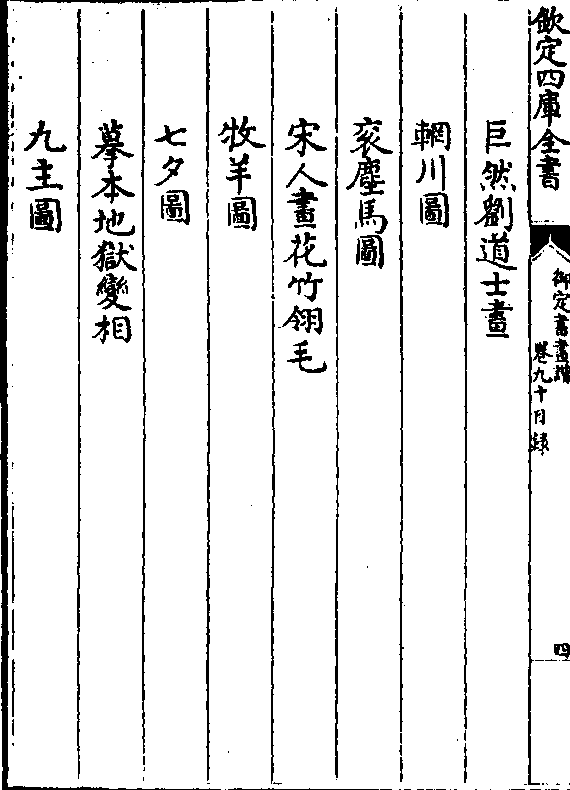 欽定四庫全書
御定書畫譜
卷九十目錄
四
巨然劉道士畫
輞川圖
衮塵馬圖
宋人畫花竹翎毛
牧羊圖
七夕圖
摹本地獄變相
九主圖